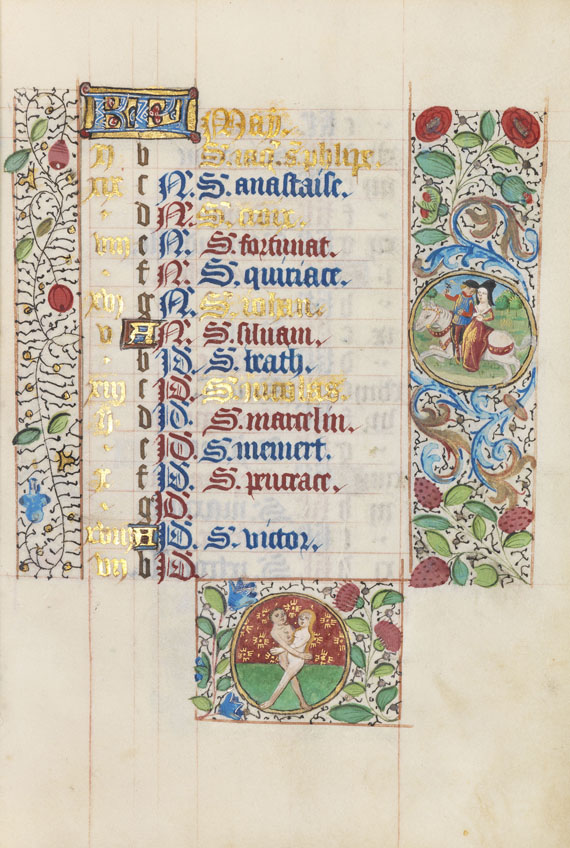 KL May.
b S. iaq. s. phlipe.
xix c N. S. anastaise.
d N. S. croix.
viii e N. S. fortunat.
f N. S. quiriace.
xvj g N. S. iohan.
v A N. S. siluain.
b Id. S. beath.
xiij c Id. S. nicolas.
ij. d Id. S. marcelin.
e Id. S. memert.
x f Id.
g Id.
xviij A Id. S. victor.
vij b Id.